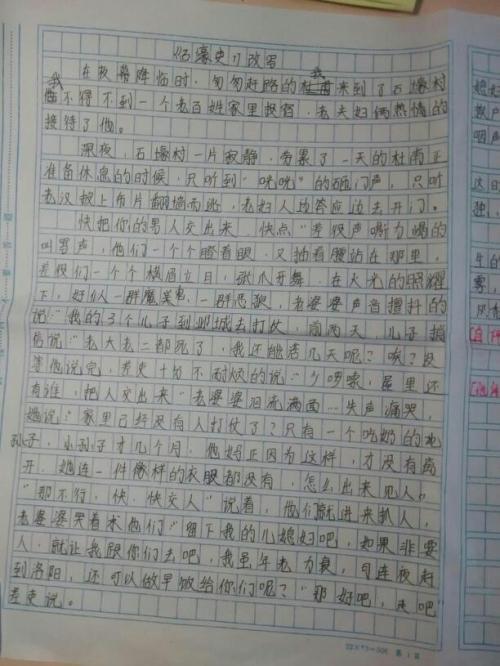 《石壕吏》改写
在夜幕降临时，匆匆赶路的杜甫来到了石壕村
我 我
他不得不到一个老百姓家里投宿，老夫妇俩热情的
接待了他。
深夜，石壕村一片寂静，劳累了一天的杜甫正
准备休息的时候，只听到“咣咣”的砸门声，只听
老汉披上布片翻墙而逃，老妇人均答应边去开门。
快把你的男人交出来，快点”差役声嘶力竭的
叫骂声，他们一个个瞪着眼，又抽着腰站在那里，
差役们一个个横眉立目，张爪牙舞，在火光的照耀
下，好似一群魔鬼，一群恶狼，老婆婆声音擅抖的
说“我的3个儿子到邺城去打仗，前两天，儿子捎
信说“老大老二都死了，我还能活几天呢？唉？没
等他说完，差吏十分不耐烦的说：“少啰嗦，屋里还
有谁，把人交出来”老婆婆泪流满面，失声痛哭，
她说：“家里已经没有人打仗了？只有一个吃奶的
孙子，小孙子才几个月，他妈正因为这样，才没有离
开，她连一件像样的衣服都没有，怎么出来见人”
“那不行，快，快交人”说着，他们就进来趴人，
老婆婆哭着求他们“留下我的儿媳妇吧，如果非要
人，就让我跟你们去吧，我虽年老力衰，可连夜赶
到洛阳，还可以做早饭给你们呢？”那好吧，走吧”
差吏说。
第1页